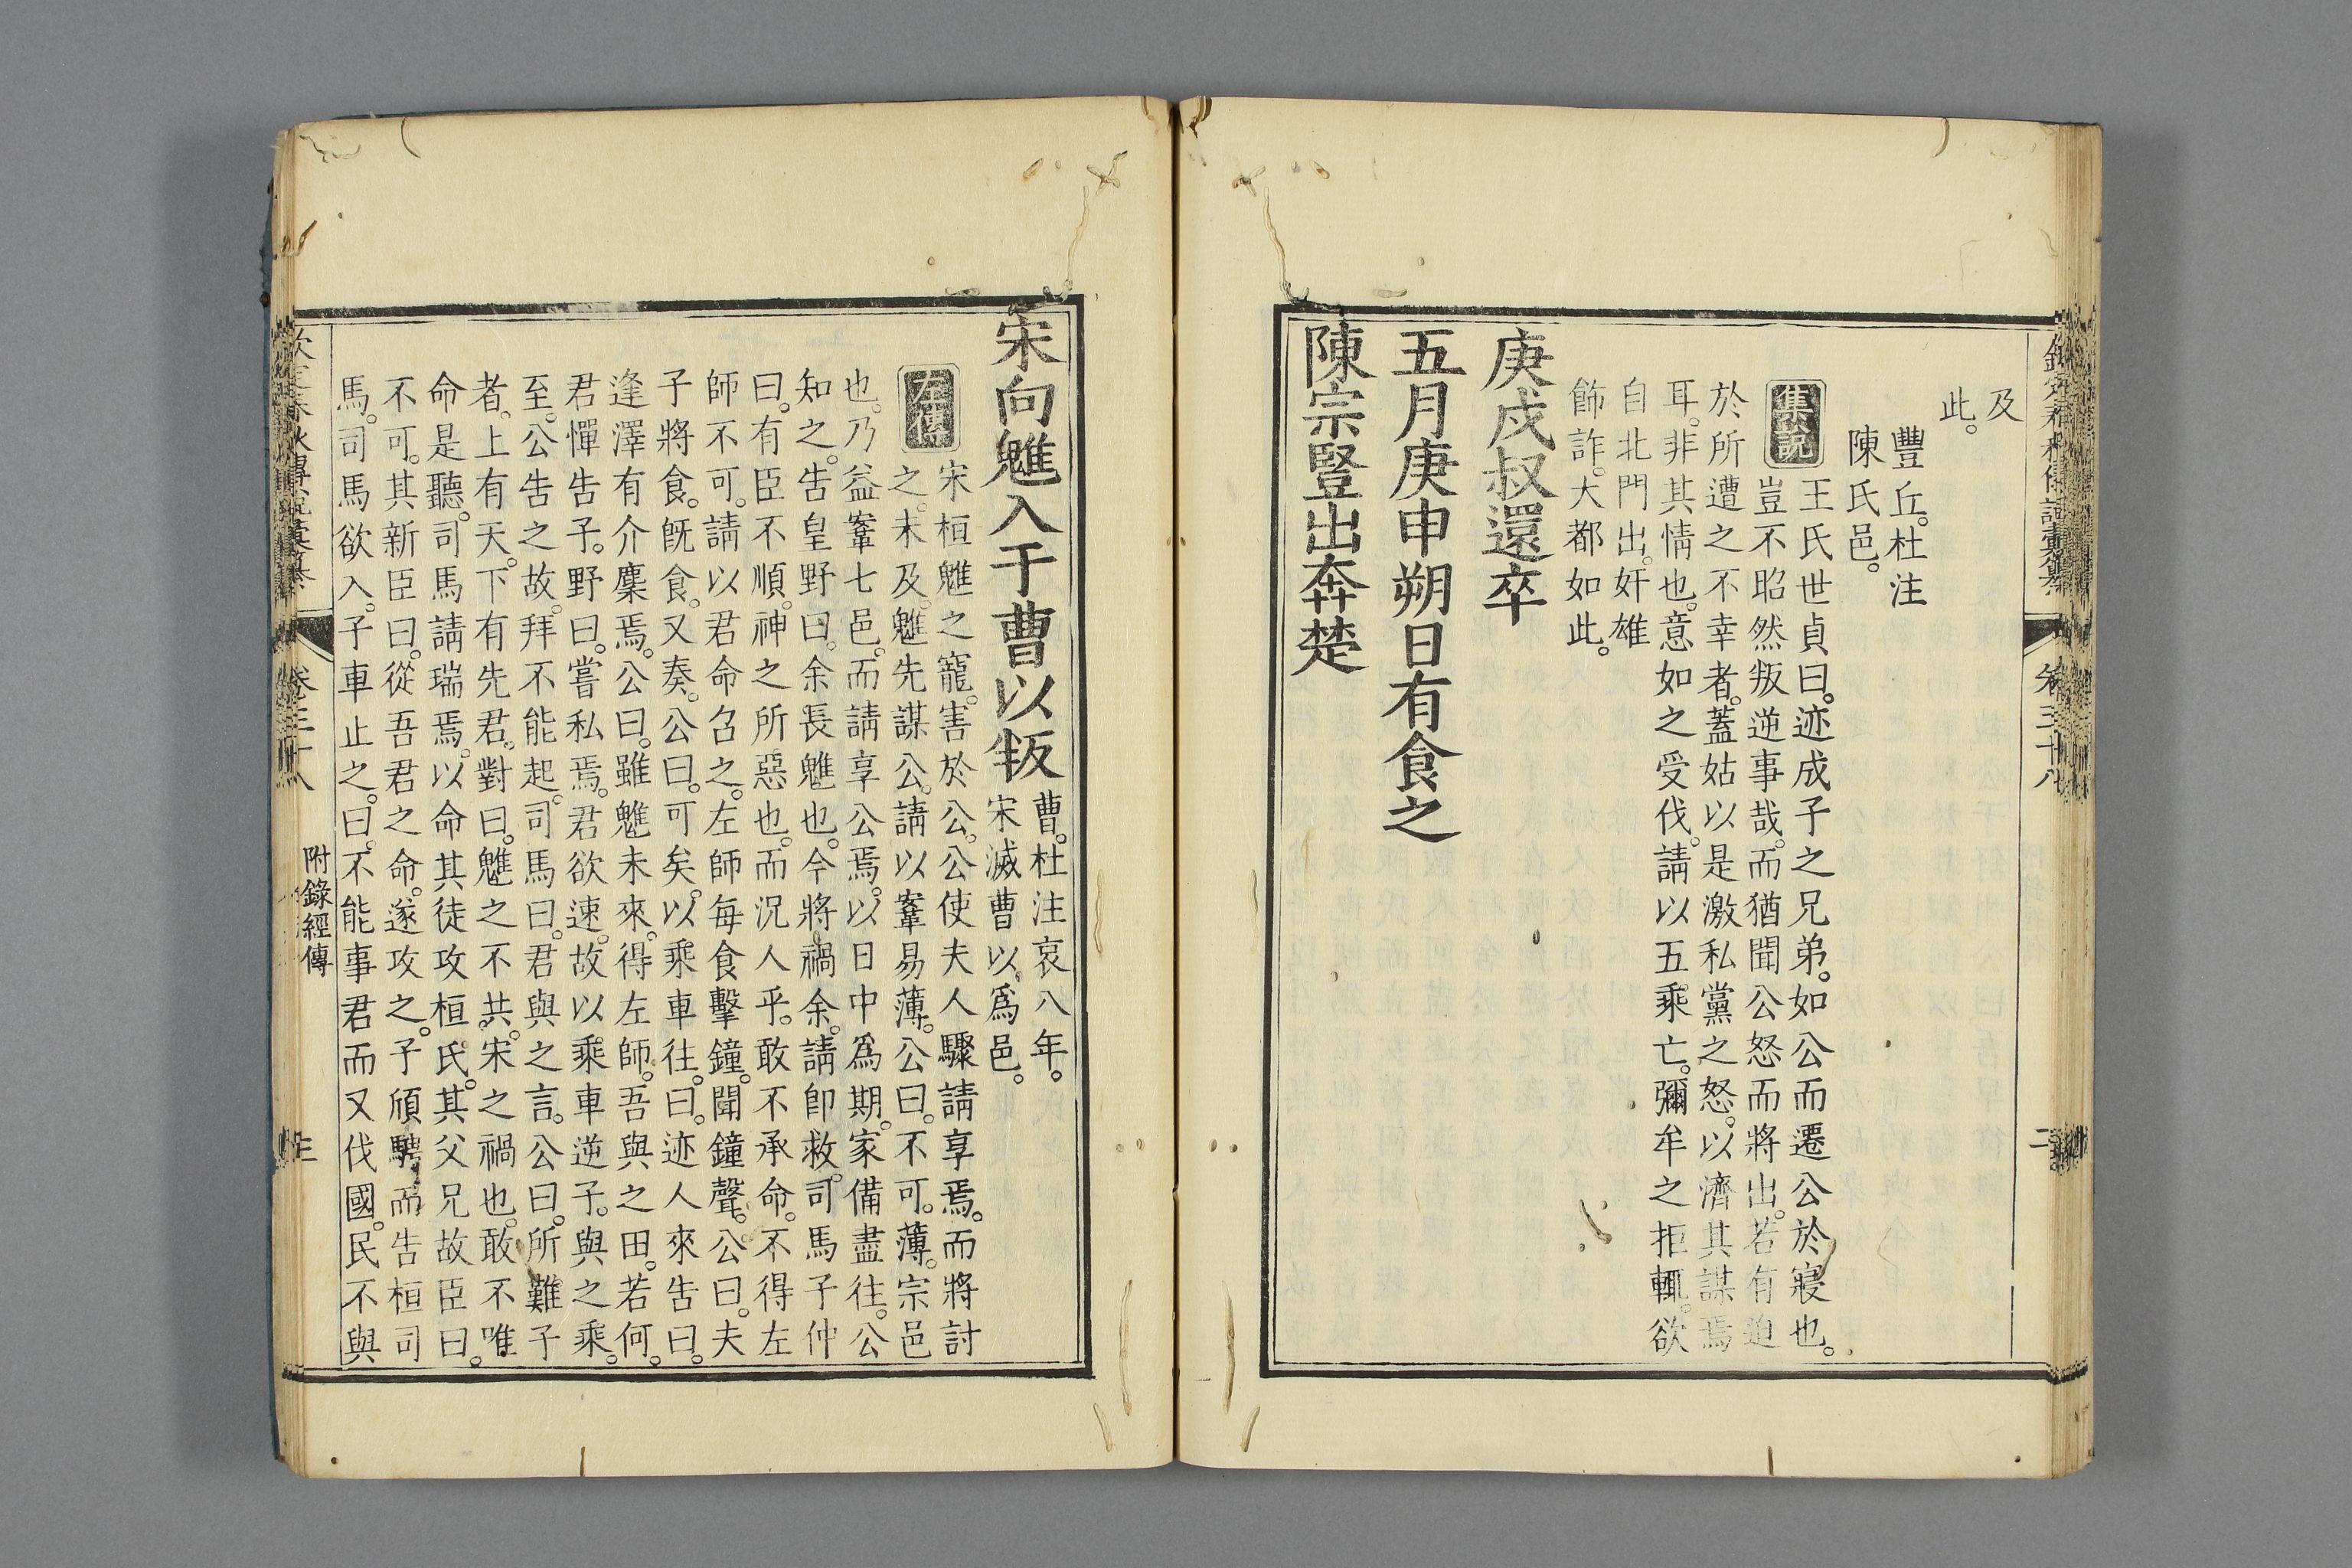 欽定春秋傳說彙纂 卷三十八 二
及
此。
豐丘。杜注
陳氏邑。
集說
王氏世貞曰。迹成子之兄弟。如公而遷公於寢也。
豈不昭然叛逆事哉。而猶聞公怒而將出。若有迫
於所遭之不幸者。蓋姑以是激私黨之怒。以濟其謀焉
耳。非其情也。意如之受伐。請以五乘亡。彌牟之拒輒。欲
自北門出。奸雄
飾詐。大都如此。
庚戌叔還卒
五月庚申朔日有食之
陳宗豎出奔楚
宋向魋入于曹以叛
曹。杜注哀八年。
宋滅曹以爲邑。
左傳
宋桓魋之寵。害於公。公使夫人驟請享焉。而將討
之。未及。魋先謀公。請以鞌易薄。公曰。不可。薄。宗邑
也。乃益鞌七邑。而請享公焉。以日中爲期。家備盡往。公
知之。告皇野曰。余長魋也。今將禍余。請卽救。司馬子仲
曰。有臣不順。神之所惡也。而況人乎。敢不承命。不得左
師不可。請以君命召之。左師每食擊鐘。聞鐘聲。公曰。夫
子將食。旣食。又奏。公曰。可矣。以乘車往。曰。迹人來告曰。
逢澤有介麇焉。公曰。雖魋未來。得左師。吾與之田。若何。
君憚告子。野曰。嘗私焉。君欲速。故以乘車逆子。與之乘。
至。公告之故。拜不能起。司馬曰。君與之言。公曰。所難子
者。上有天。下有先君。對曰。魋之不共。宋之禍也。敢不唯
命是聽。司馬請瑞焉。以命其徒攻桓氏。其父兄故臣曰。
不可。其新臣曰。從吾君之命。遂攻之。子頎騁而告桓司
馬。司馬欲入。子車止之。曰。不能事君而又伐國。民不與
欽定春秋傳說彙纂 卷三十八 附錄經傳 三